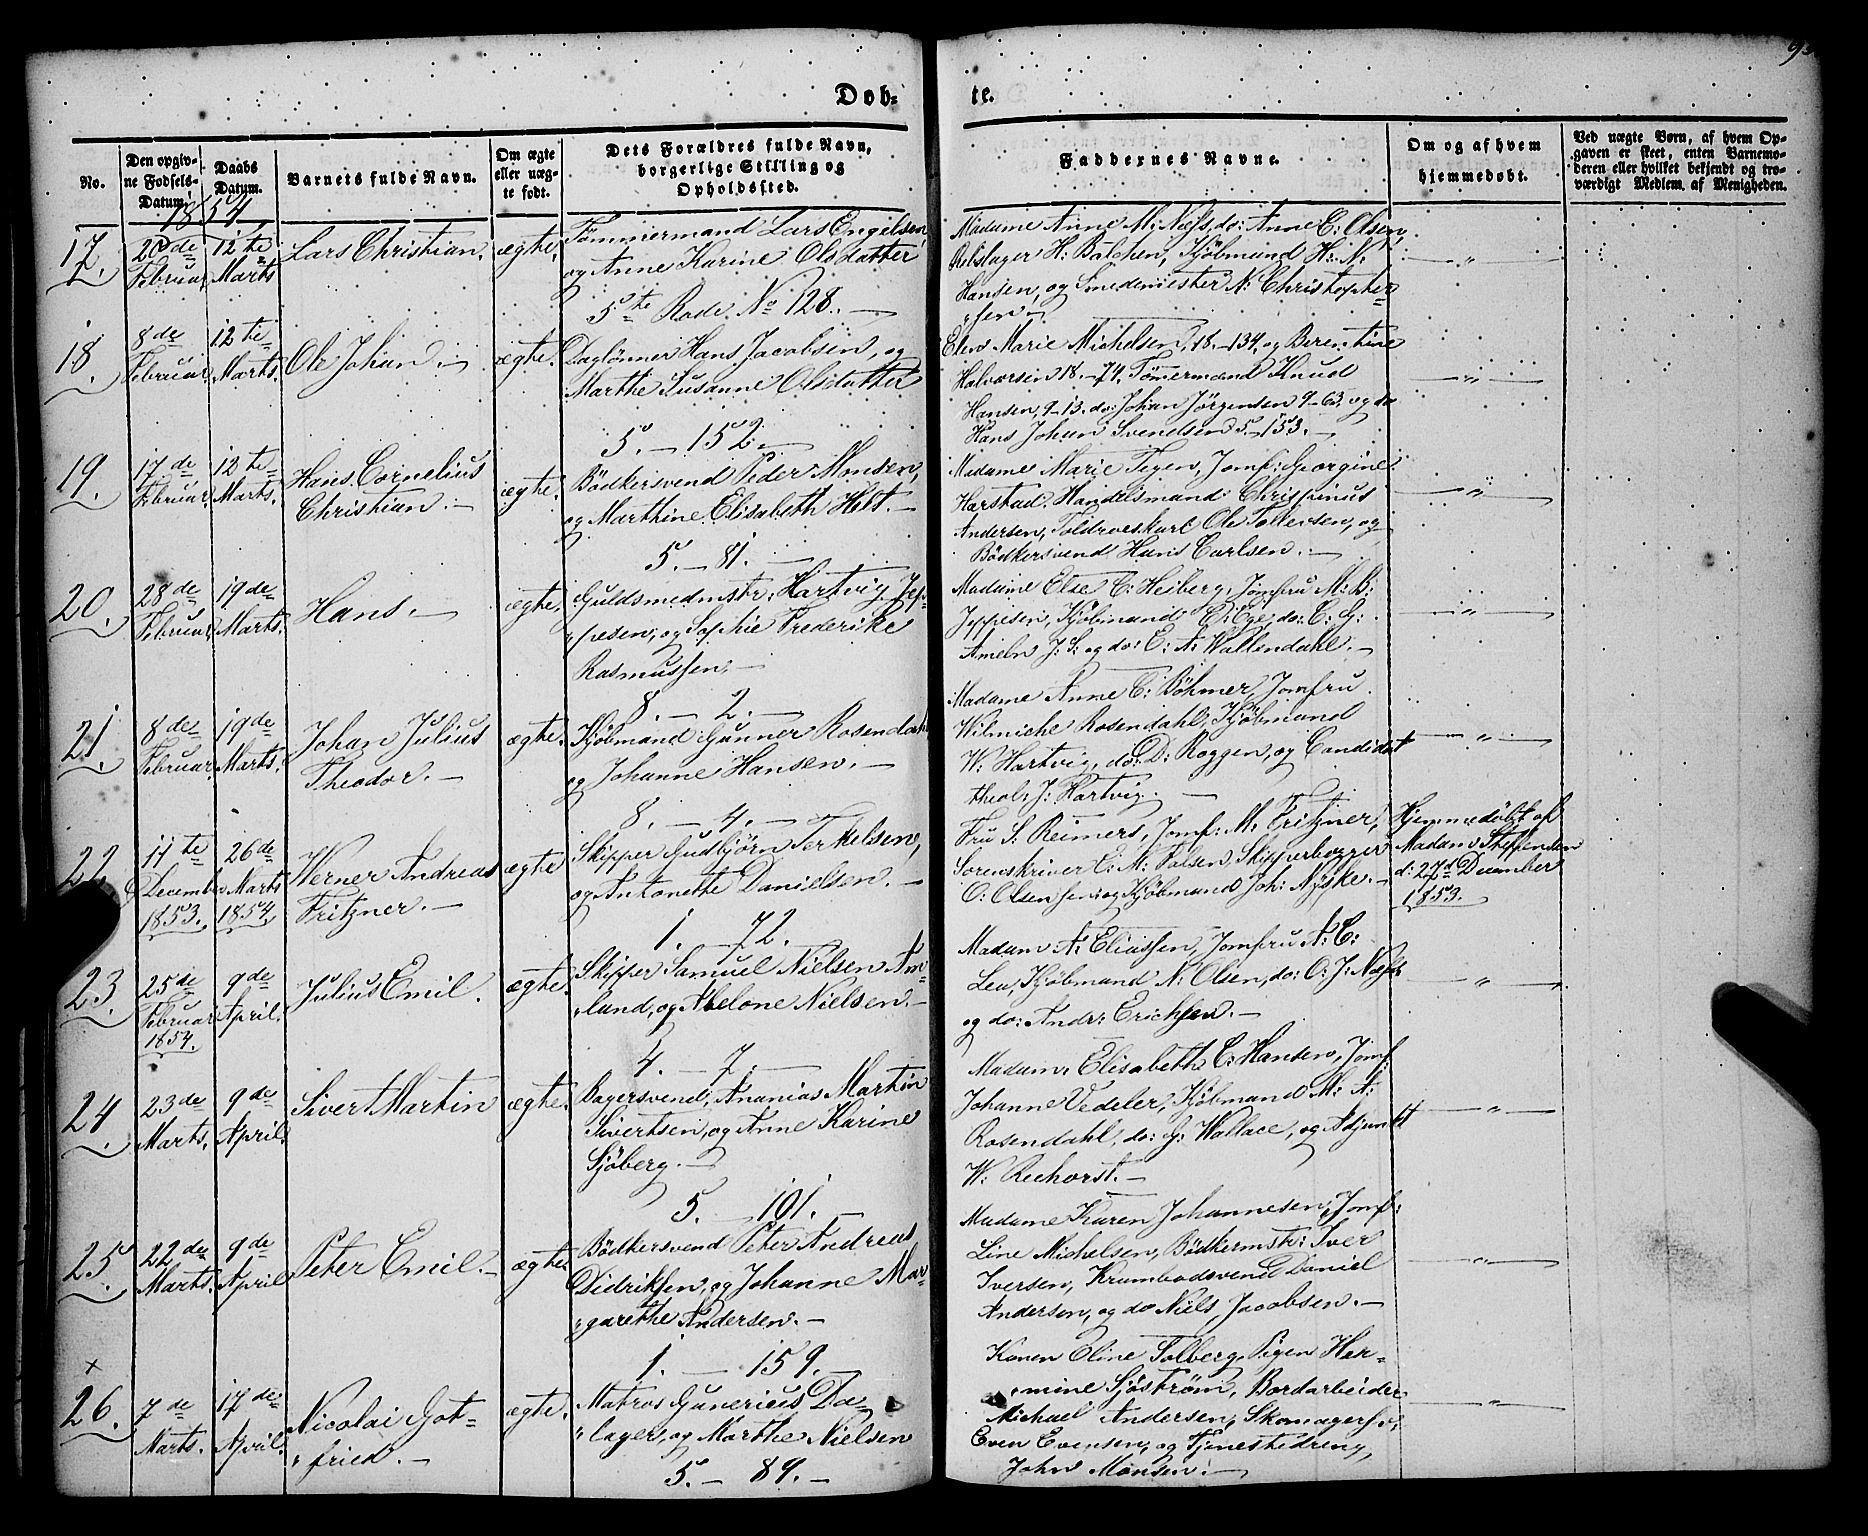 Døb-
te.
No.
Den opgiv-
ne Fødsels-
Datum.
Daabs
Datum.
Barnets fulde Navn.
Om ægte
eller uæg-
te født.
Dets Forældres fulde Navn,
borgerlige Stilling og
Opholdssted.
Faddernes Navne.
Om og af hvem
hjemmedøbt.
Ved uægte Børn, af hvem Op-
gaven er skeet, enten Barnemo-
deren eller hvilket bekjendt og tro-
værdigt Medlem af Menigheden.
1854
17.
20de
Februar.
12te
Marts
Lars Christian.
ægte.
Tømmermand Lars Engelsen
og Anne Karine Olsdatter
5te Rode No 128. —
Madame Anne M: Næss, do: Anne C: Olsen,
Rebslager H: Balchen, Kjøbmand H: N:
Hansen, og Smedemester N: Christopher-
"sen —
— " —
18.
8de
Februar.
12te
Marts.
Ole Johan. —
ægte.
Daglønner Hans Jacobsen, og
Marthe Susanne Olsdatter
5. — 152. —
Elen Marie Michelsen, 18.—134, og Berentine
Halvorsen 18.—74. Tømermand Knud
Hansen, 9—13. do: Johan Jörgensen 9—63, og do
Hans Johan Svendsen 5—153. —
— " —
19.
17de
Februar.
12te
Marts.
Hans Cornelius
Christian. —
ægte.
Bödkersvend Peder Monsen,
og Marthine Elisabeth Holt. —
5. — 81. —
Madame Marie Tigen, Jomf: Georgine
Harstad, Handelsmand Chrispinus
Andersen, Toldroeskarl Ole Tollevsen, og
Bödkersvend Hans Carlsen. —
— " —
20.
28de
Februar.
19de
Marts.
Hans. —
ægte.
Guldsmedmstr: Hartvig Jep-
"pesen, og Sophie Frederike
Rasmussen. —
8. — 2. —
Madame Else C: Heiberg, Jomfru M: B:
Jeppesen, Kjöbmand E: Ege, do: C: G:
Ameln J: S: og do: E: A: Wallendahl. —
— " —
21.
8de
Februar.
19de
Marts.
Johan Julius
Theodor. —
ægte.
Kjöbmand Gunner Rosendahl
og Johanne Hansen. —
8. — 4. —
Madame Anne C: Böhmer, Jomfru
Wilmiche Rosendahl, Kjöbmand
W: Hartvig, do: D: Roggen, og Candidat
theol: J: Hartvig. —
— " —
22
11te
December
1853.
26de
Marts
1854.
Werner Andreas
Fritzner. —
ægte
Skipper Gudbjörn Terkelsen,
og Antonette Danielsen. —
1. — 72.
Fru S: Reimers, Jomf: M: Fritzner,
Sorenskriver E: M: Falsen, Skipperborger
O: Olsen sen: og Kjöbmand Joh: Nyske. —
Hjemmedöbt af
Madam Steffensen
d: 27d December
1853.
23.
25de
Februar
1854.
9de
April.
Julius Emil.
ægte.
Skipper Samuel Nielsen Am-
"land, og Abelone Nielsen. —
4. — 7. —
Madam A: Eliassen, Jomfru A: C:
Lea, Kjöbmand N: Olsen, do: O: J: Næss
og do: Andr: Erichsen. —
— " —
24.
23de
Marts.
9de
April.
Sivert Martin
ægte.
Bagersvend, Ananias Martin
Sivertsen, og Anne Karine
Sjöberg. —
5. — 101.
Madam, Elisabeth C: Hansen, Jomf:
Johanne Vedeler, Kjöbmand M: A:
Rosendahl, do: G: Wallace, og Adjunkt
W: Rechorst. —
— " —
25.
22de
Marts.
9de
April
Peter Emil. —
ægte.
Bödkersvend Peter Andreas
Didriksen, og Johanne Mar-
"garethe Andersen. —
1. — 159. —
Madame Karen Johannesen, Jomf:
Line Michelsen, Bödkermstr: Iver
Iversen, Krambodsvend Daniel
Andersen, og do Niels Jacobsen. —
— " —
×
26.
7de
Marts.
17de
April.
Nicolai Got-
"fried. —
ægte.
Matros Gunerius Da-
"lager, og Marthe Nielsen
5. — 89. —
Konen Oline Solberg, Pigen Her-
"mine Sjöström, Bordarbeider
Michael Andersen, Skomagersv:
Even Evensen, og Tjenestedreng,
John Monsen. —
— " —